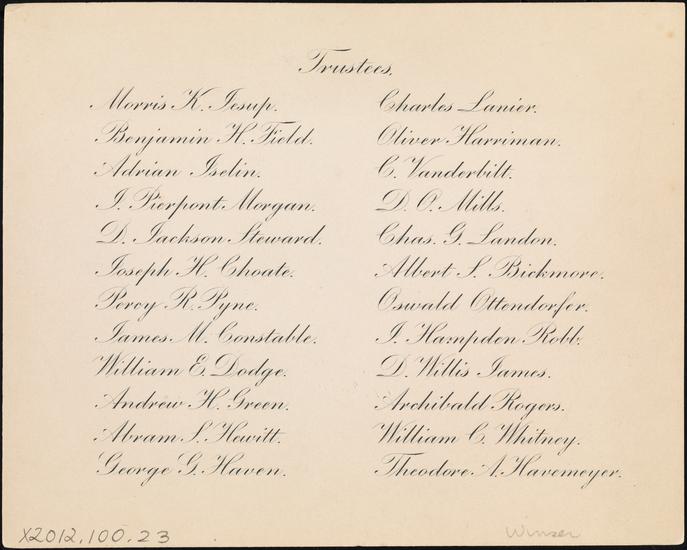 Trustees.
Morris K. Jesup.
Benjamin H. Field.
Adrian Iselin.
J. Pierpont Morgan.
D. Jackson Steward.
Joseph H. Choate.
Percy R. Pyne.
James M. Constable.
William E. Dodge.
Andrew H. Green.
Abram S. Hewitt.
George G. Haven.
Charles Lanier.
Oliver Harriman.
C. Vanderbilt.
D. O. Mills.
Chas. G. Landon.
Albert S. Bickmore.
Oswald Ottendorfer.
J. Hampden Robb.
D. Willis James.
Archibald Rogers.
William C. Whitney.
Theodore A. Havemeyer.
X2012.100.23
Winser